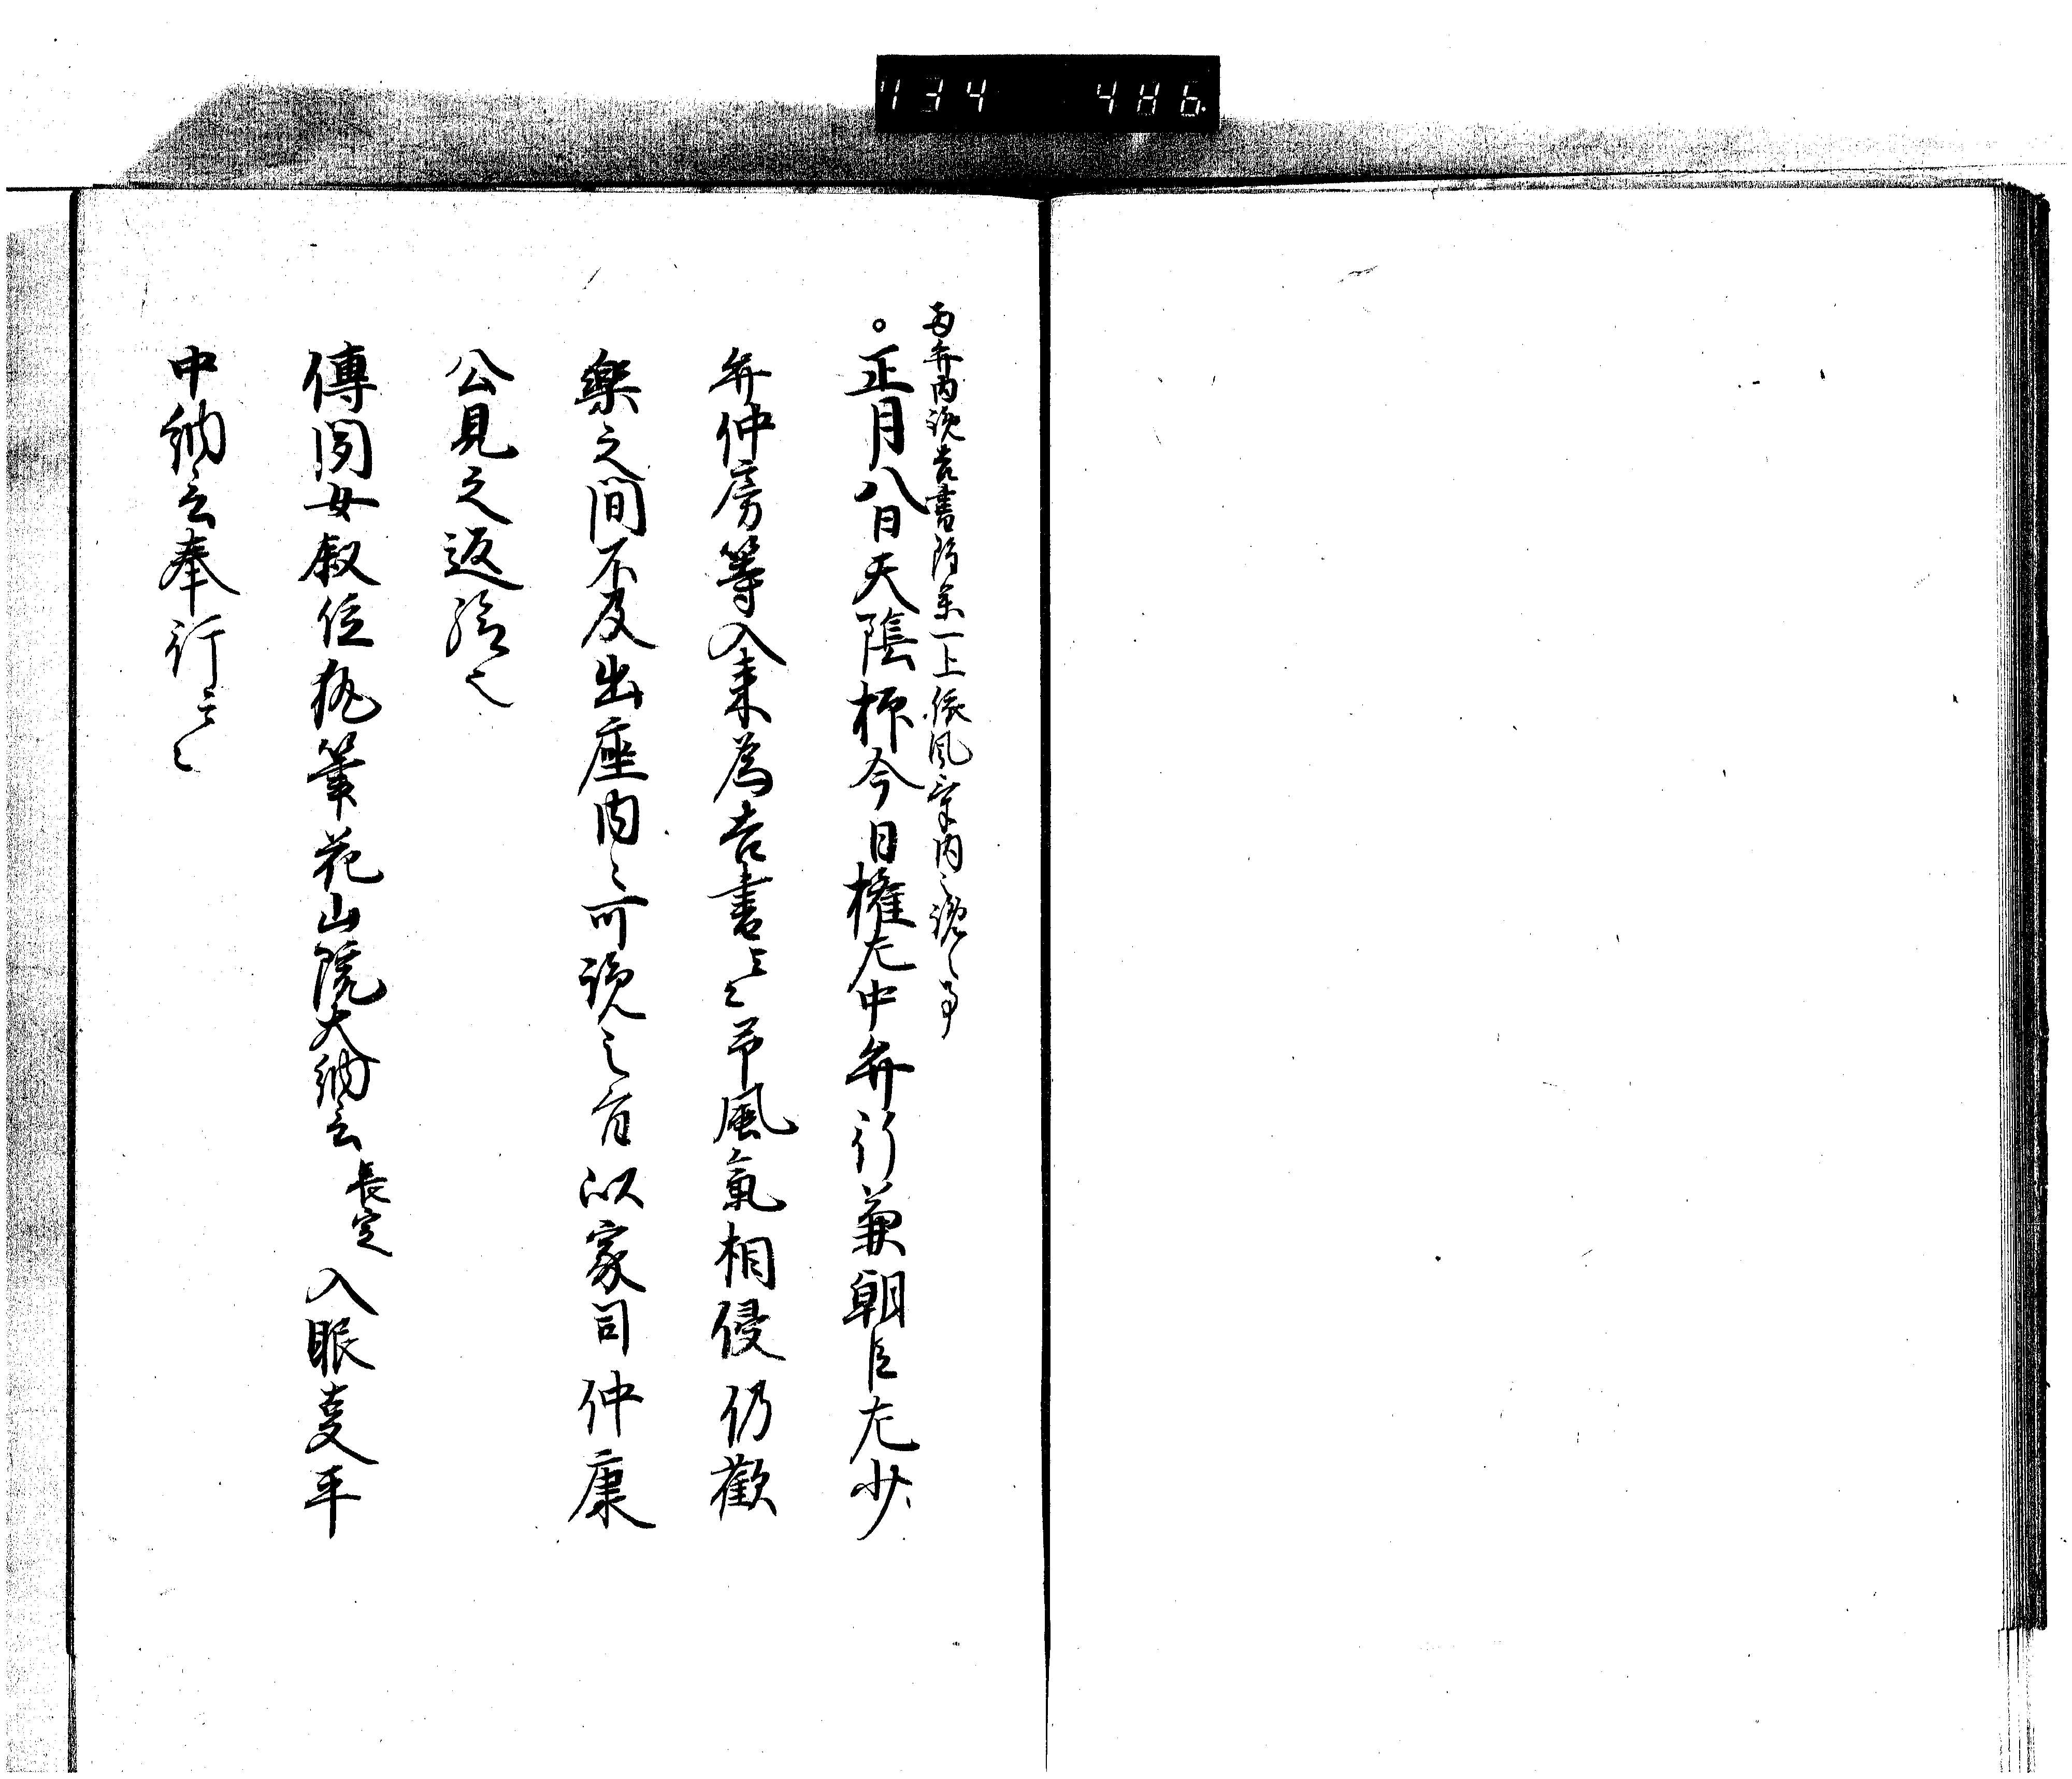 734 486
両弁内覧吉書隨身一上依風気内々覧之事
。正月八日天陰柳今日権左中弁行兼朝臣左少
弁仲房等入来為吉書云々予風氣相侵仍歡
樂之間不及出座内々可覧之旨以家司仲康
公見之返給之
傳聞女叙位執筆花山院大納言長定入眼叓平
中納言奉行云々